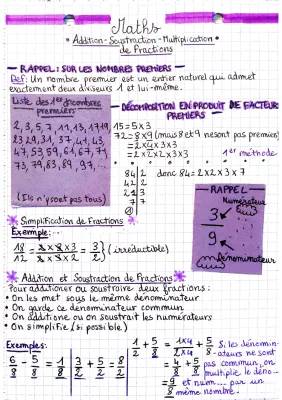 Maths
• Addition - Soustraction - Multiplication •
de Fractions
— RAPPEL : SUR LES NOMBRES PREMIERS —
Def: Un nombre premier est un entier naturel qui admet
exactement deux diviseurs 1 et lui-même.
Liste des 1ers nombres
premiers
2, 3, 5, 7, 11, 13, 17, 19,
23, 29, 31, 37, 41, 43,
47, 53, 59, 61, 67, 71,
73, 79, 83, 89, 97, ...
(Ils n'y sont pas tous)
— DÉCOMPOSITION EN PRODUIT DE FACTEURS
PREMIERS —
15 = 5 x 3
72 = 8 x 9 (mais 8 et 9 ne sont pas premiers)
= 2 x 4 x 3 x 3
= 2 x 2 x 2 x 3 x 3 1re méthode
84 | 2 donc 84 = 2 x 2 x 3 x 7
42 | 2
21 | 3
7 | 7
— RAPPEL —
Numérateur
3
9
Dénominateur
Simplification de Fractions
Exemple:
18/12 = 2 x 3 x 3 / 2 x 3 x 2 = 3/2 (irréductible)
Addition et Soustraction de Fractions
Pour additionner ou soustraire deux fractions:
• On les met sous le même dénominateur
• On garde ce dénominateur commun
• On additionne ou on soustrait les numérateurs
• On simplifie (si possible)
Exemples:
6/8 - 5/8 = 1/8
3/2 + 5/2 = 8/2
1/2 + 5/8 = 1x4/2x4 + 5/8
= 4/8 + 5/8
= 9/8
Si les dénomin-
-ateurs ne sont
pas commun, on
multiplie le déno-
et num... par un
même nombre.